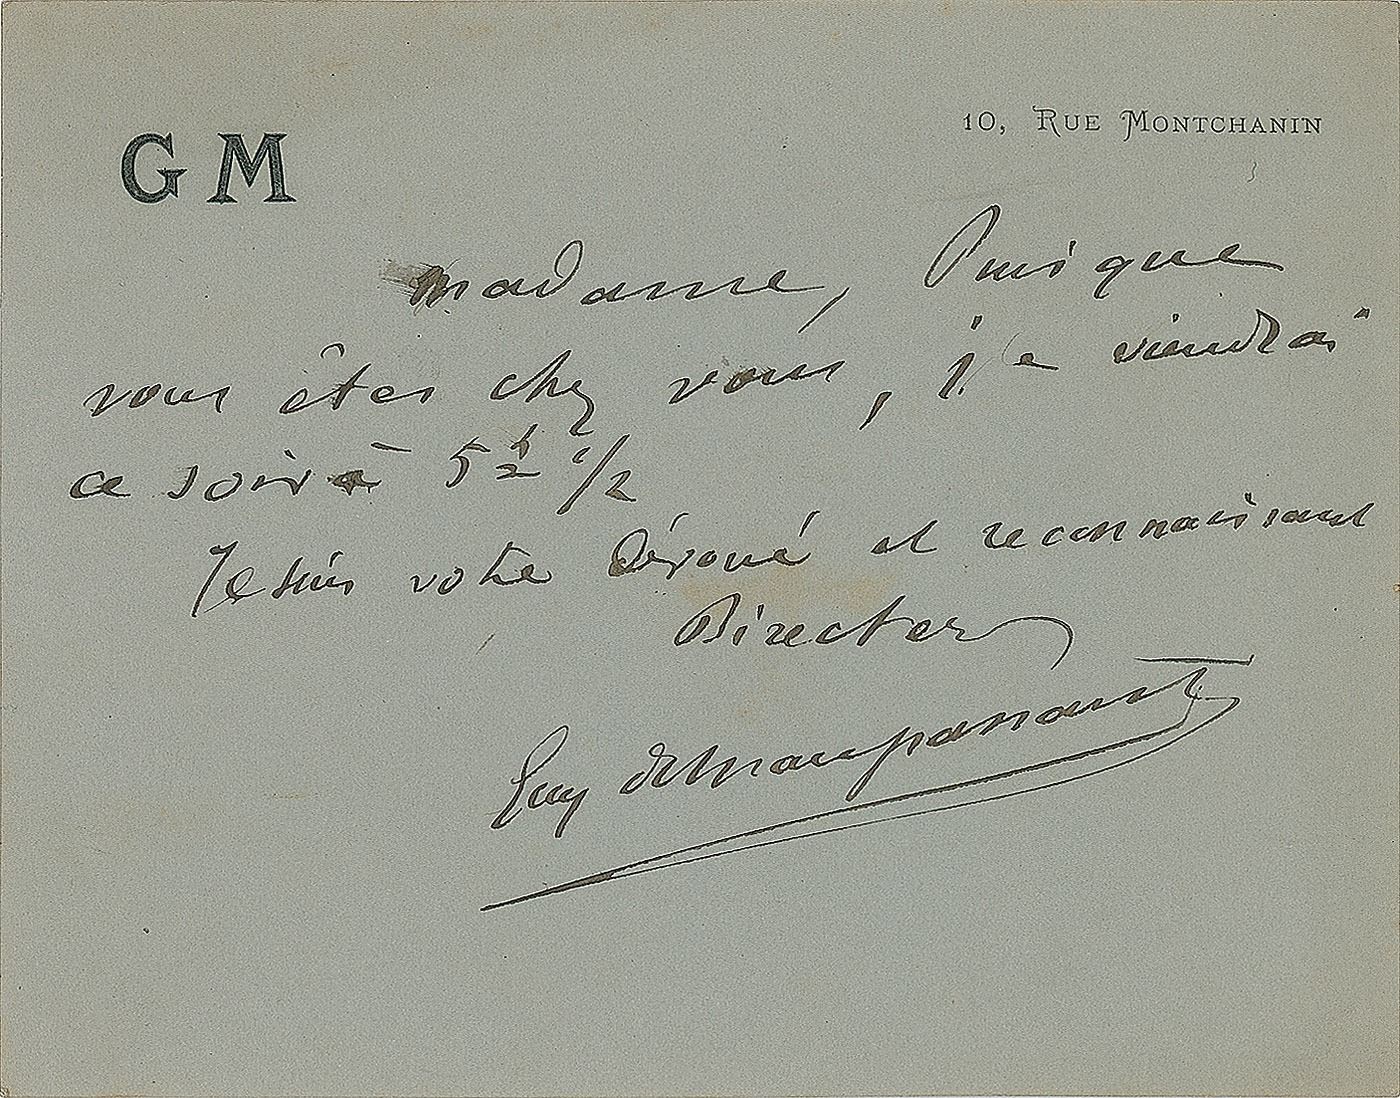 GM
10, RUE MONTCHANIN
Madame, Puisque
vous êtes chez vous, je viendrai
ce soir à 5 1/2
Je suis votre dévoué et reconnaissant
Directer
Guy de Maupassant